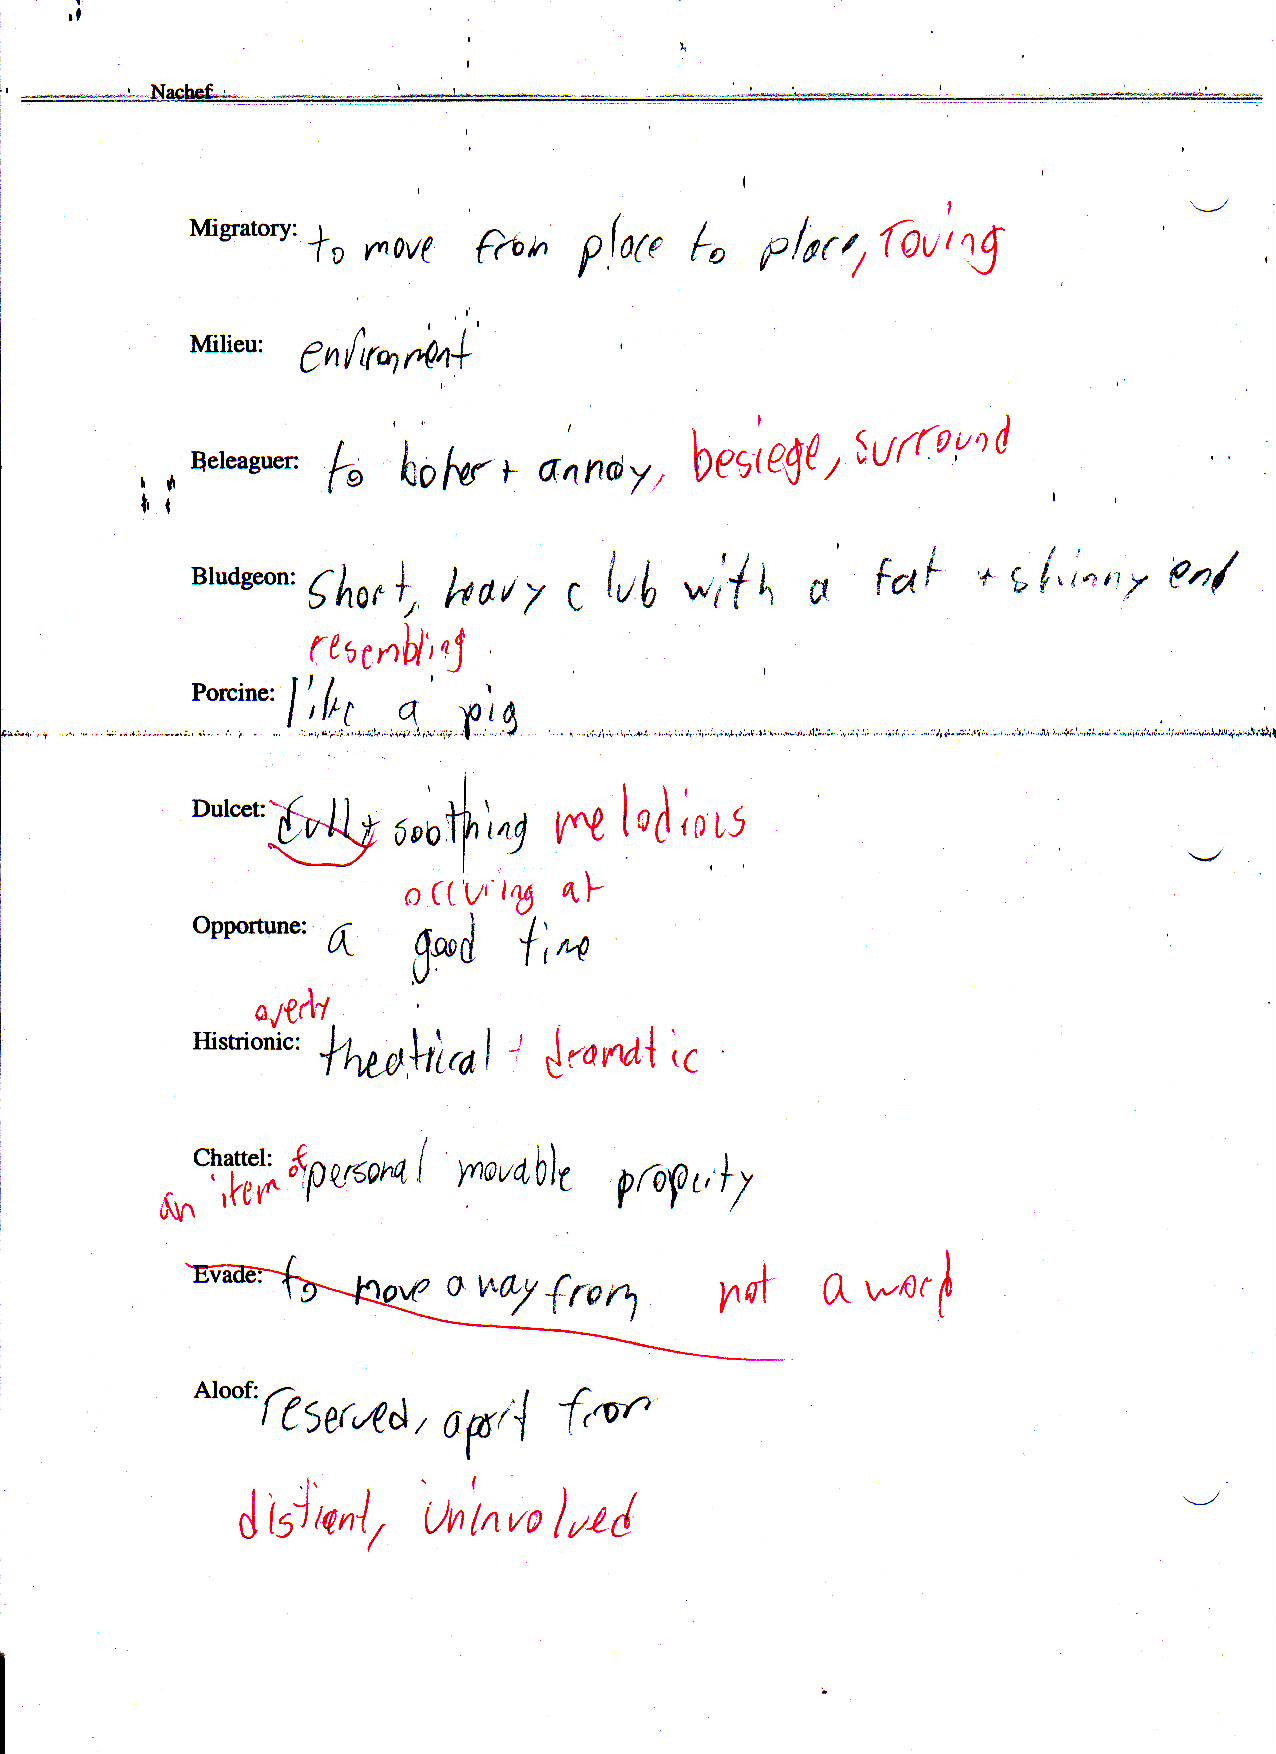 Nachef
Migratory: to move from place to place, roving
Milieu: environment
Beleaguer: to boter + annoy, besiege, surround
Bludgeon: short, heavy club with a fat + skinny end
resembling
Porcine: like a pig
Dulcet: soothing melodious
occuring at
Opportune: a good time
overly
Histrionic: theatrical + dramatic
Chattel: of personal movable property
an item
Evade: to move away from not a word
Aloof: reserved, apart from
distant, uninvolved